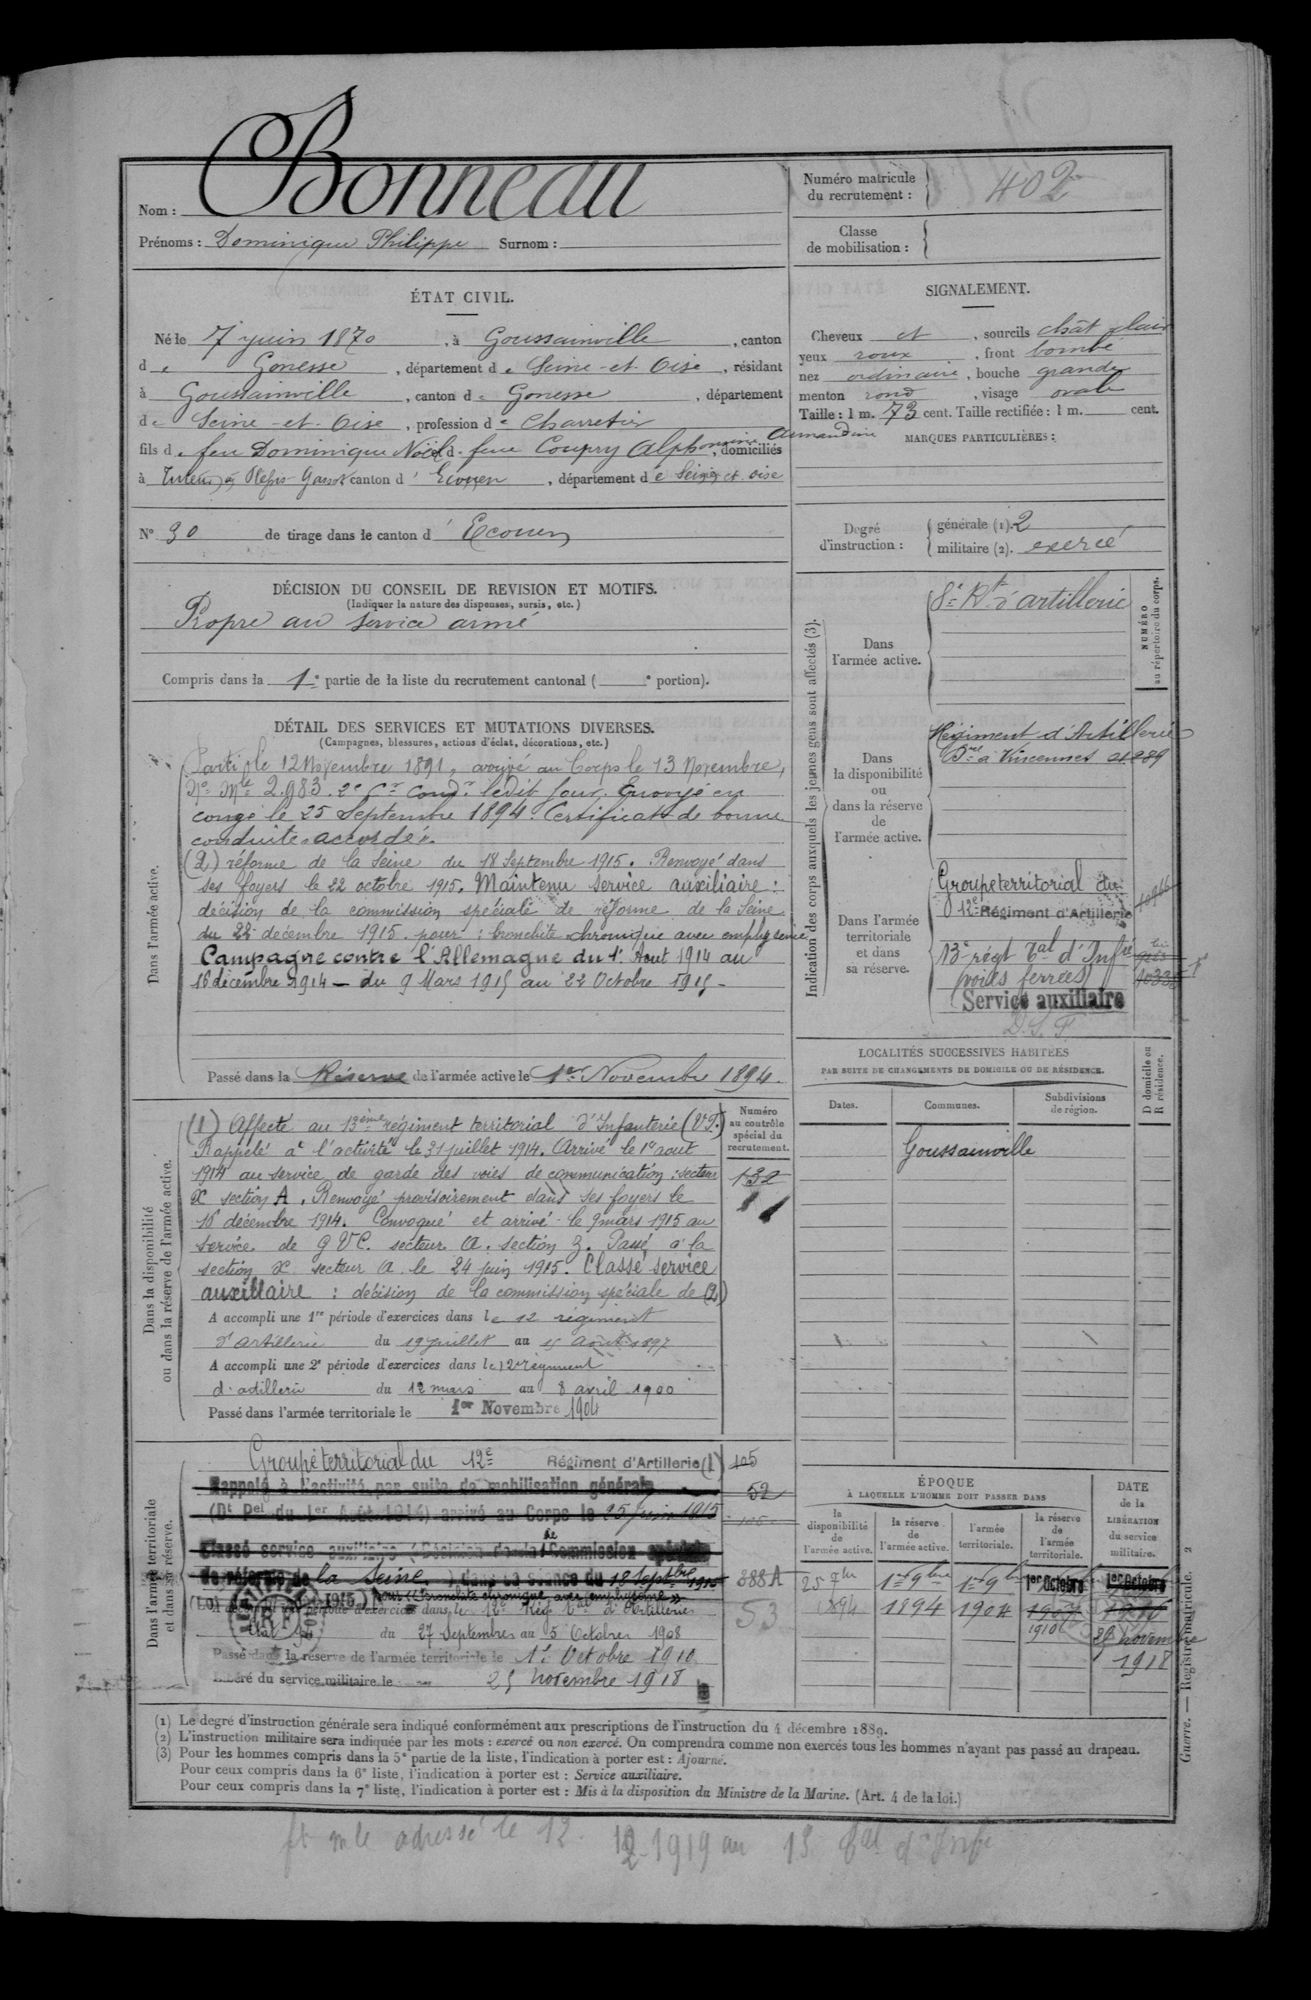 Bonneau
Nom :
Prénoms : Dominique Philippe Surnom :
Numéro matricule du recrutement : 402
Classe de mobilisation :
ÉTAT CIVIL.
Né le 7 juin 1870, à Goussainville, canton
de Gonesse, département de Seine-et-Oise, résidant
à Goussainville, canton de Gonesse, département
de Seine-et-Oise, profession de Charretier
fils de feu Dominique Noël et d. feue Coupry Alphonsine Armandine, domiciliés
à Plessis-Gassot canton d' Ecouen, département de Seine et Oise
N° 30 de tirage dans le canton d' Ecouen
SIGNALEMENT.
Cheveux et, sourcils chât clair
yeux roux, front bombé
nez ordinaire, bouche grande
menton rond, visage ovale
Taille : 1 m. 73 cent. Taille rectifiée : 1 m. cent.
MARQUES PARTICULIÈRES :
Degré d'instruction :
générale (1). 2
militaire (2). exercé
DÉCISION DU CONSEIL DE REVISION ET MOTIFS.
(Indiquer la nature des dispenses, sursis, etc.)
Propre au service armé
Compris dans la 1e partie de la liste du recrutement cantonal ( e portion).
DÉTAIL DES SERVICES ET MUTATIONS DIVERSES.
(Campagnes, blessures, actions d'éclat, décorations, etc.)
Dans l'armée active.
Parti le 12 Novembre 1891, arrivé au Corps le 13 Novembre,
No Mle 2.983. 2e Cr Condr ledit jour. Envoyé en
congé le 25 Septembre 1894. Certificat de bonne
conduite "accordé".
(2) réforme de la Seine du 18 Septembre 1915. Renvoyé dans
ses foyers le 22 octobre 1915. Maintenu service auxiliaire :
décision de la commission spéciale de réforme de la Seine
du 22 décembre 1915 pour : bronchite chronique avec emphysème
Campagne contre l'Allemagne du 1er Aout 1914 au
16 décembre 1914 - du 9 Mars 1915 au 22 Octobre 1915 -
Passé dans la Réserve de l'armée active le 1er Novembre 1894.
Indication des corps auxquels les jeunes gens sont affectés (3).
NUMÉRO au répertoire du corps.
Dans l'armée active.
8e Rt d'artillerie
Dans la disponibilité ou dans la réserve de l'armée active.
Régiment d'Artillerie
à Vincennes
Dans l'armée territoriale et dans sa réserve.
Groupe territorial du
12e Régiment d'Artillerie
13e régt Tal d'Infie
(voies ferrées)
Service auxiliaire
D.S.T
LOCALITÉS SUCCESSIVES HABITÉES
PAR SUITE DE CHANGEMENTS DE DOMICILE OU DE RÉSIDENCE.
D domicile ou R résidence.
Dates. Communes. Subdivisions de région.
Goussainville
Dans la disponibilité ou dans la réserve de l'armée active.
Numéro au contrôle spécial du recrutement.
132
(1) Affecté au 13ème régiment territorial d'Infanterie (V.F.)
Rappelé à l'activité le 31 juillet 1914. Arrivé le 1er aout
1914 au service de garde des voies de communication : secteur
X section A. Renvoyé provisoirement dans ses foyers le
16 décembre 1914. Convoqué et arrivé le 9 mars 1915 au
service de G V C. secteur A. section 3. Passé à la
section X secteur A le 24 juin 1915. Classé service
auxiliaire : décision de la commission spéciale de (2)
A accompli une 1re période d'exercices dans le 12 régiment
d'artillerie du 19 juillet au 15 août 1897
A accompli une 2e période d'exercices dans le 12 régiment
d'artillerie du 12 mars au 8 avril 1900
Passé dans l'armée territoriale le 1er Novembre 1904
Dans l'armée territoriale et dans sa réserve.
Groupe territorial du 12e Régiment d'Artillerie (1) 105
Rappelé à l'activité par suite de mobilisation générale 52
(Dt Pel du 1er Août 1914) arrivé au Corps le 25 Juin 1915
Classé service auxiliaire (Décision de la Commission spéciale
de réforme de la Seine) dans sa séance du 18 Septbre 1915 388A
pour « Bronchite chronique avec emphysème »
période d'exercices dans le 12e Rég Tal d'Artillerie 53
du 27 Septembre au 5 Octobre 1908
Passé dans la réserve de l'armée territoriale le 1er Octobre 1910
Libéré du service militaire le 25 novembre 1918
ÉPOQUE
À LAQUELLE L'HOMME DOIT PASSER DANS
la disponibilité de l'armée active. la réserve de l'armée active. l'armée territoriale. la réserve de l'armée territoriale.
DATE de la LIBÉRATION du service militaire.
25 7bre 1er 9bre 1er 9bre 1er Octobre 1er Octobre
1894 1894 1904 1907 1916
1910 25 novembre
1918
Guerre. — Registre matricule. 2
(1) Le degré d'instruction générale sera indiqué conformément aux prescriptions de l'instruction du 4 décembre 1889.
(2) L'instruction militaire sera indiquée par les mots : exercé ou non exercé. On comprendra comme non exercés tous les hommes n'ayant pas passé au drapeau.
(3) Pour les hommes compris dans la 5e partie de la liste, l'indication à porter est : Ajourné.
Pour ceux compris dans la 6e liste, l'indication à porter est : Service auxiliaire.
Pour ceux compris dans la 7e liste, l'indication à porter est : Mis à la disposition du Ministre de la Marine. (Art. 4 de la loi.)
ft mle adressé le 12. 12-1919 au 13 tal d'Infie